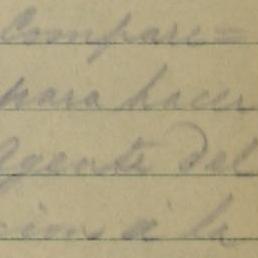 Compare=
para hacer
Agente del
cion á la